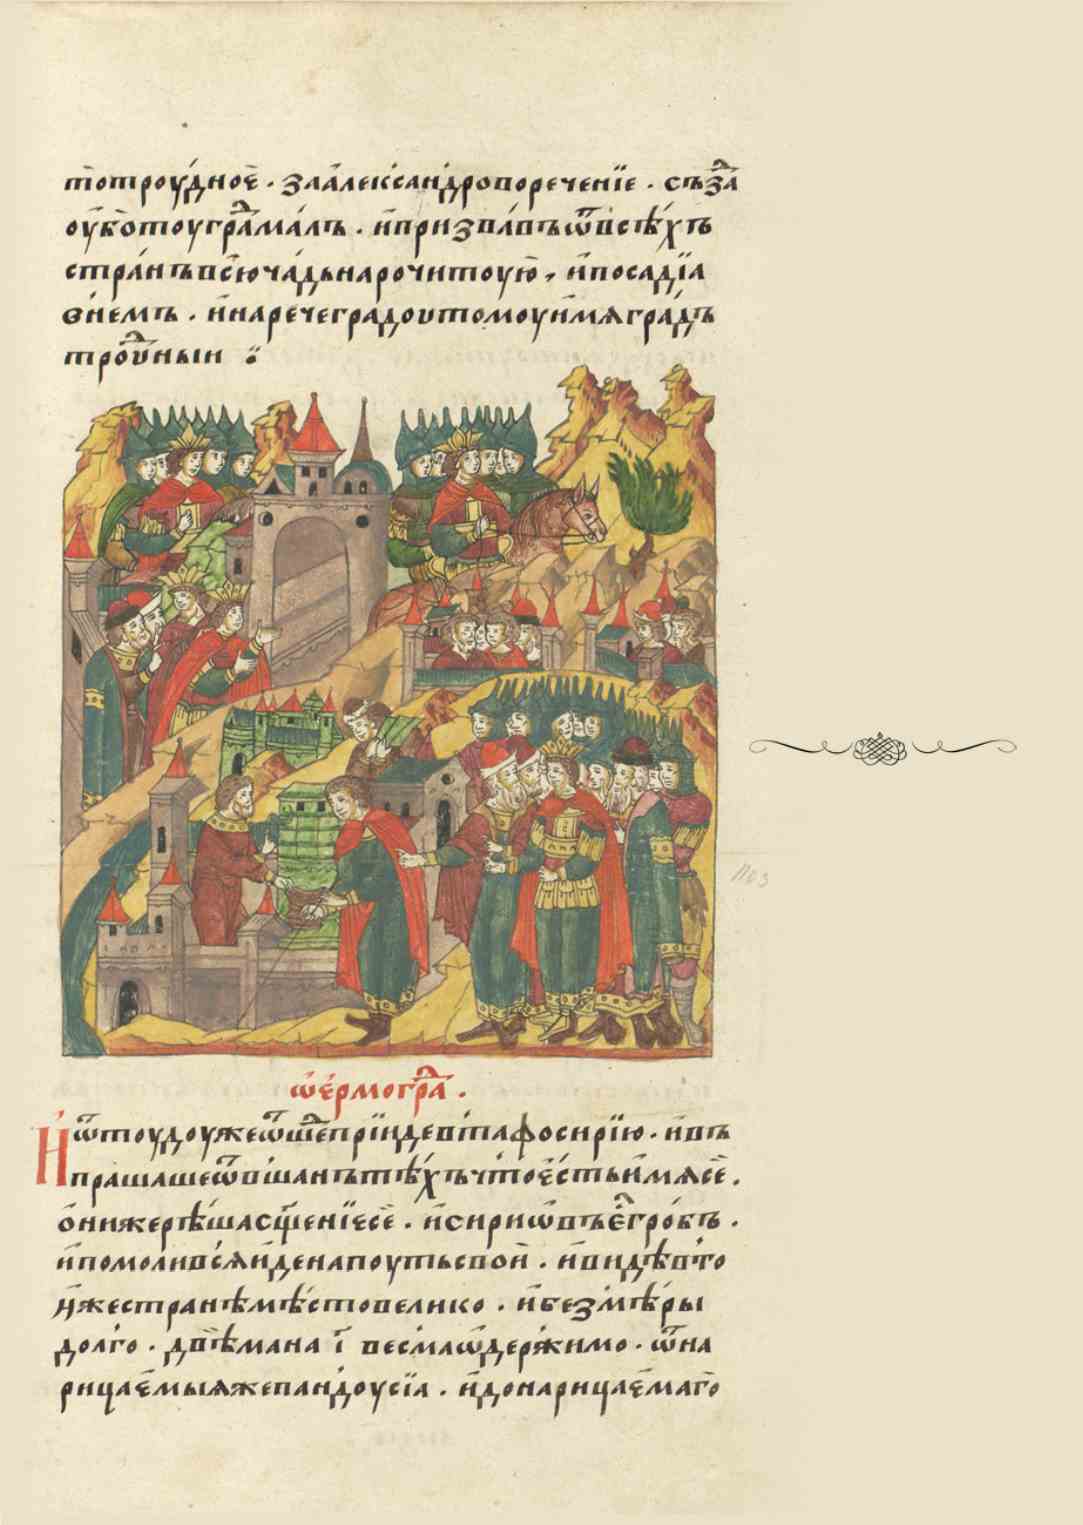 тотроудное҇ . заалеѯандроворечение . съз҇да
оуботоугра҇малъ . ипризвавъѿвсѣхъ
странъвсючадьнарочитоую, ипосадїа
внемъ . инаречеградоутомоуимяградъ
тро҇уныи :
ѡермогра҇ .
Иѿтоудоужеѿше҇приидевътафосирїю . ивъ
прашашеѿвшанътѣхъчтоестьимясе .
онижерѣшасщ҃енїесе . исириѡвъегро҇бъ .
ипомоливсяиденапоутьсвои . ивидѣвто
яжестранѣмѣстовелико . ибезмѣры
долго . двѣмана ї весмаѡдержимо . ѿна
рицаемыяжепандоусїа . идонарицаемаго
1103